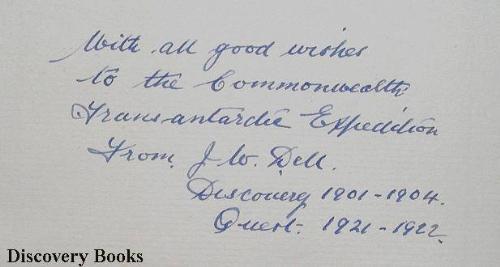 With all good wishes
to the Commonwealth
Transantarctic Expedition
From J W. Dell.
Discovery 1901-1904.
Quest. 1921-1922.
Discovery Books